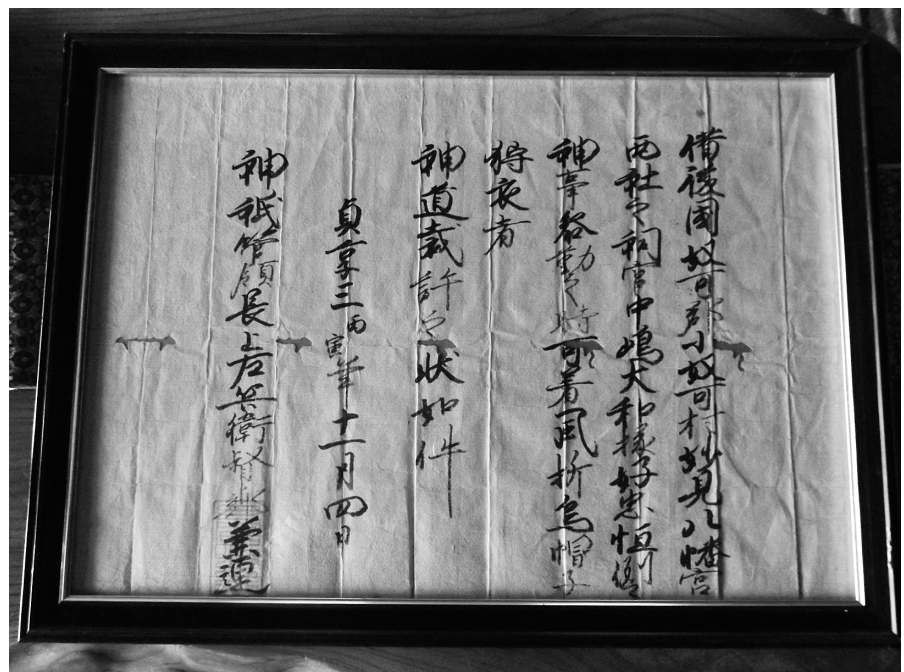 備後國奴可郡小奴可村妙見八幡宮
両社之祠官中嶋大和掾好忠恒例
神事参勤之時可着風折烏帽子
狩衣者
神道裁許之状如件
貞享三丙寅年十一月四日
神祇管領長上左兵衛督卜部兼連